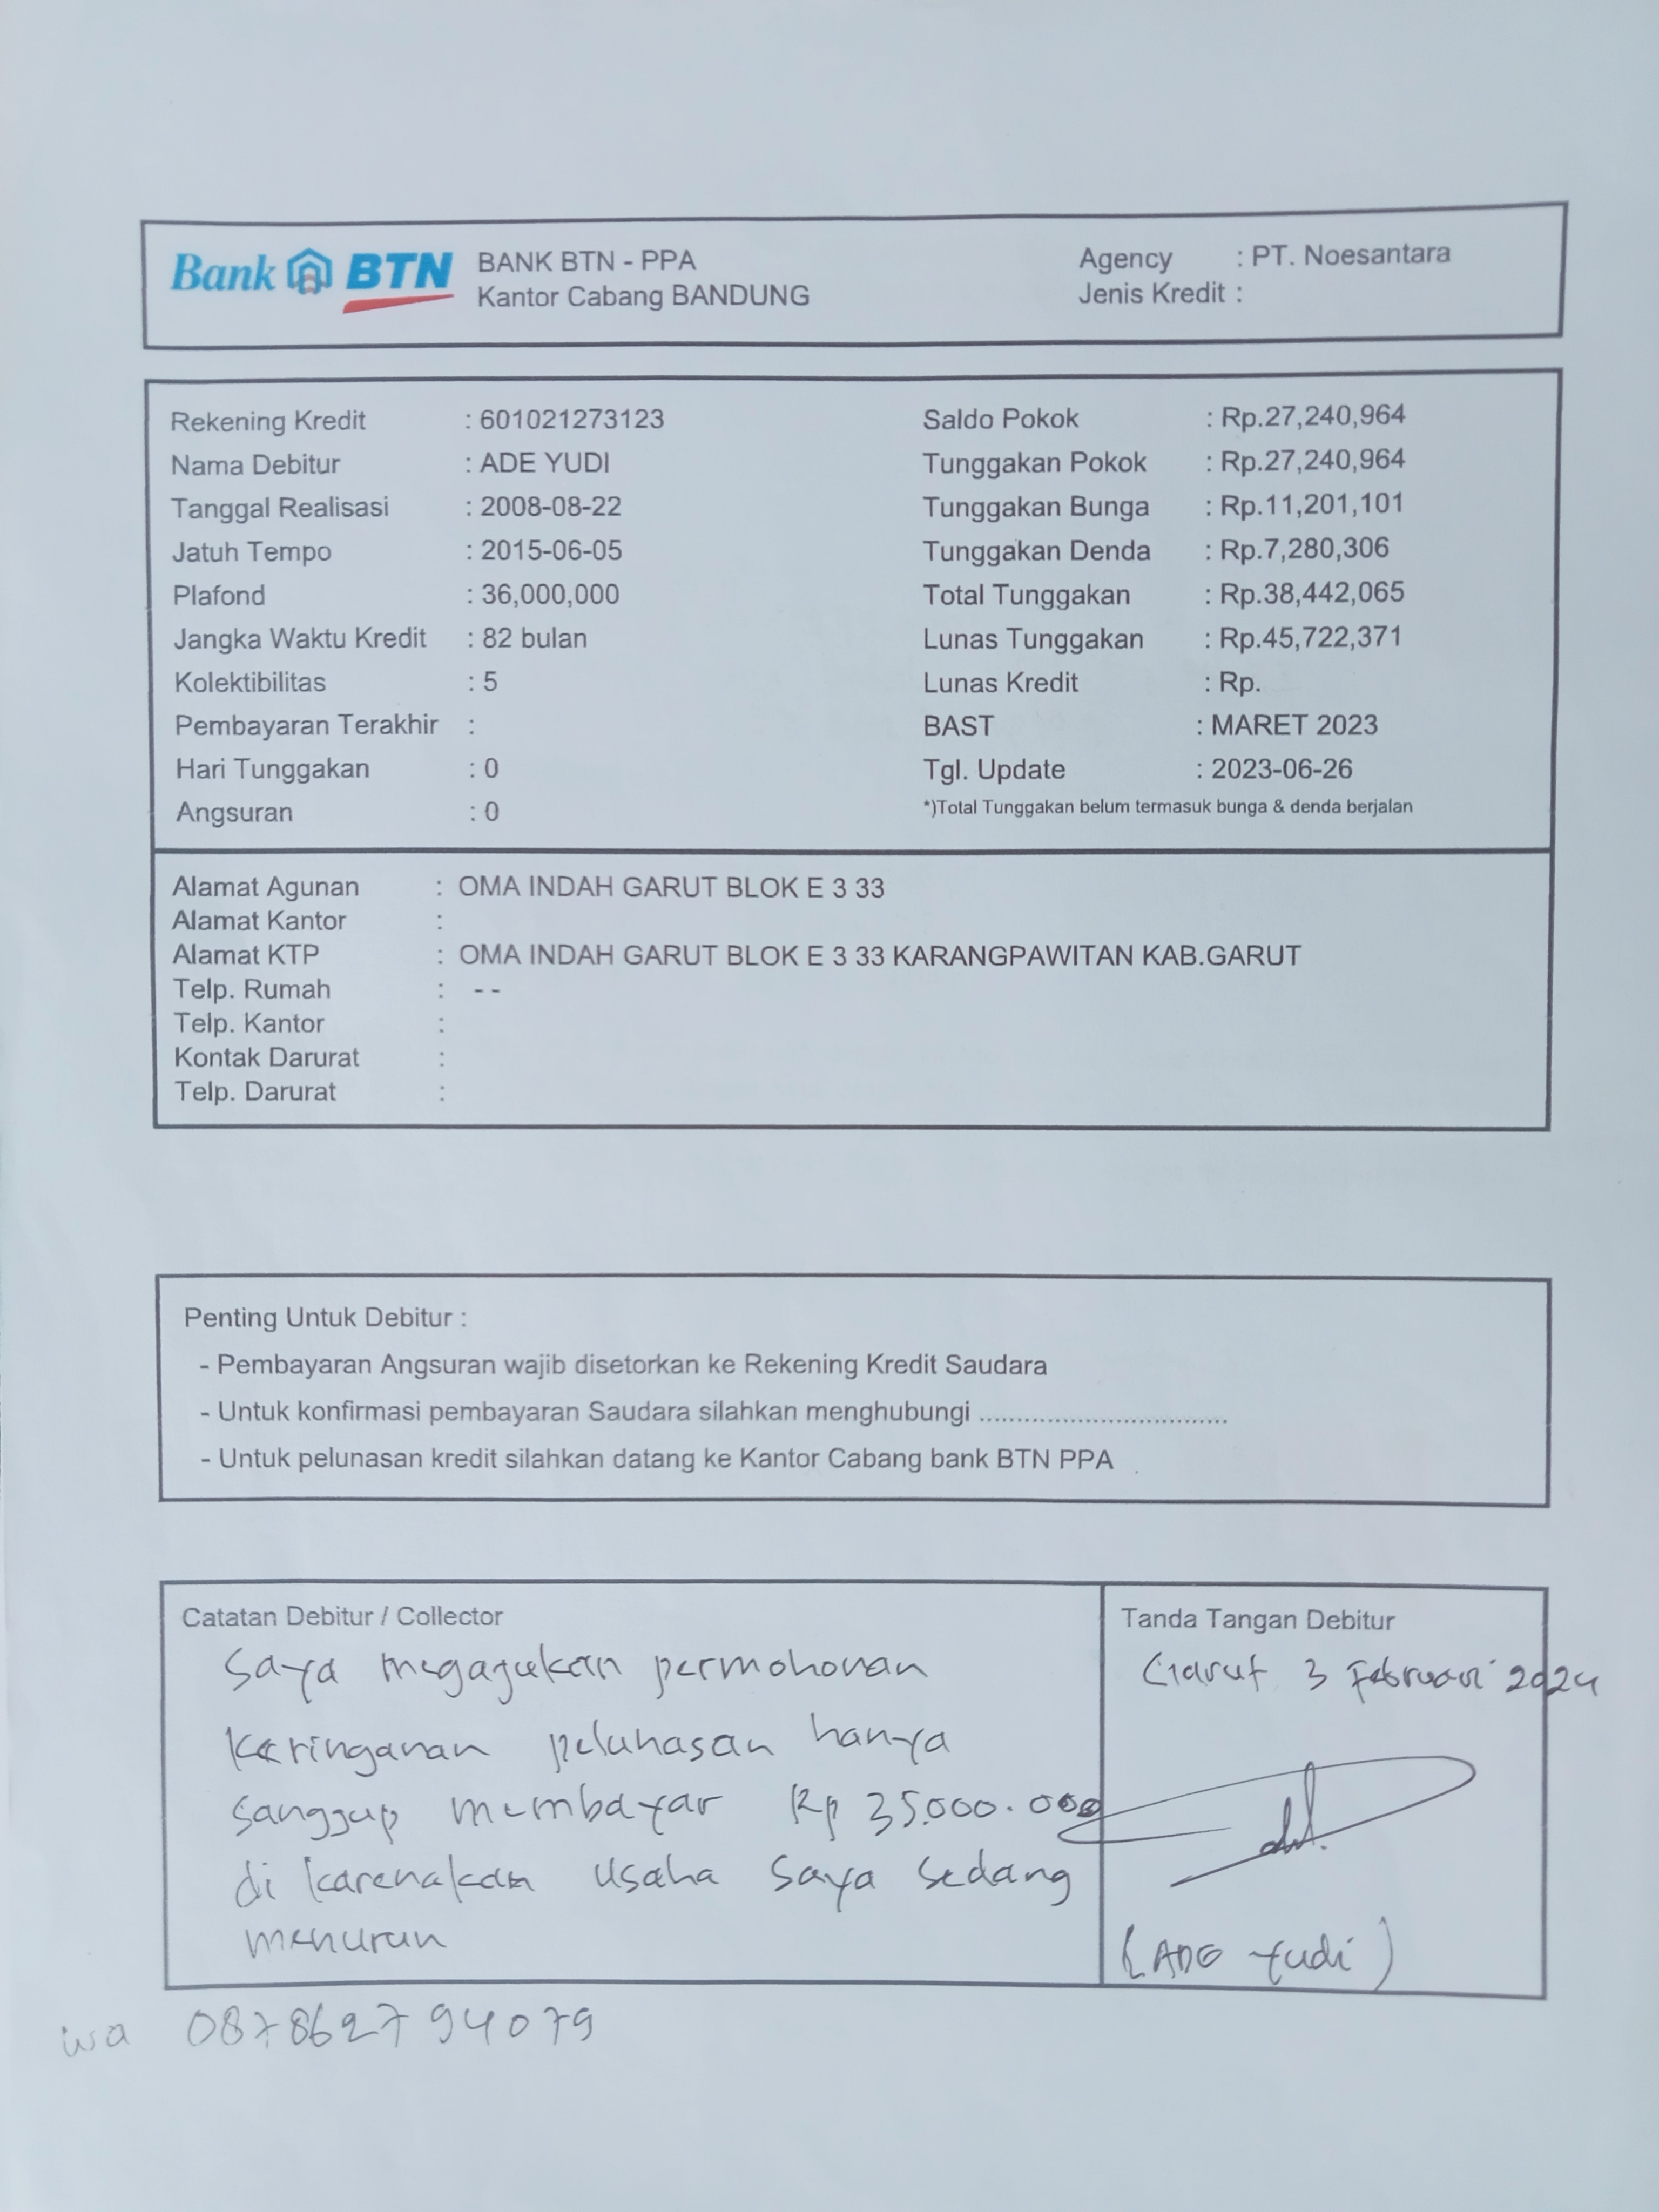 Bank BTN
BANK BTN - PPA
Kantor Cabang BANDUNG
Agency : PT. Noesantara
Jenis Kredit :
Rekening Kredit : 601021273123
Nama Debitur : ADE YUDI
Tanggal Realisasi : 2008-08-22
Jatuh Tempo : 2015-06-05
Plafond : 36,000,000
Jangka Waktu Kredit : 82 bulan
Kolektibilitas : 5
Pembayaran Terakhir :
Hari Tunggakan : 0
Angsuran : 0
Saldo Pokok : Rp.27,240,964
Tunggakan Pokok : Rp.27,240,964
Tunggakan Bunga : Rp.11,201,101
Tunggakan Denda : Rp.7,280,306
Total Tunggakan : Rp.38,442,065
Lunas Tunggakan : Rp.45,722,371
Lunas Kredit : Rp.
BAST : MARET 2023
Tgl. Update : 2023-06-26
*)Total Tunggakan belum termasuk bunga & denda berjalan
Alamat Agunan : OMA INDAH GARUT BLOK E 3 33
Alamat Kantor :
Alamat KTP : OMA INDAH GARUT BLOK E 3 33 KARANGPAWITAN KAB.GARUT
Telp. Rumah : - -
Telp. Kantor :
Kontak Darurat :
Telp. Darurat :
Penting Untuk Debitur :
- Pembayaran Angsuran wajib disetorkan ke Rekening Kredit Saudara
- Untuk konfirmasi pembayaran Saudara silahkan menghubungi .................................
- Untuk pelunasan kredit silahkan datang ke Kantor Cabang bank BTN PPA
Catatan Debitur / Collector
Saya megajukan permohonan
keringanan pelunasan hanya
sanggup membayar Rp 35.000.000
di karenakan usaha saya sedang
menurun
Tanda Tangan Debitur
Garut 3 Februari 2024
(ADE Yudi)
wa 087862794079